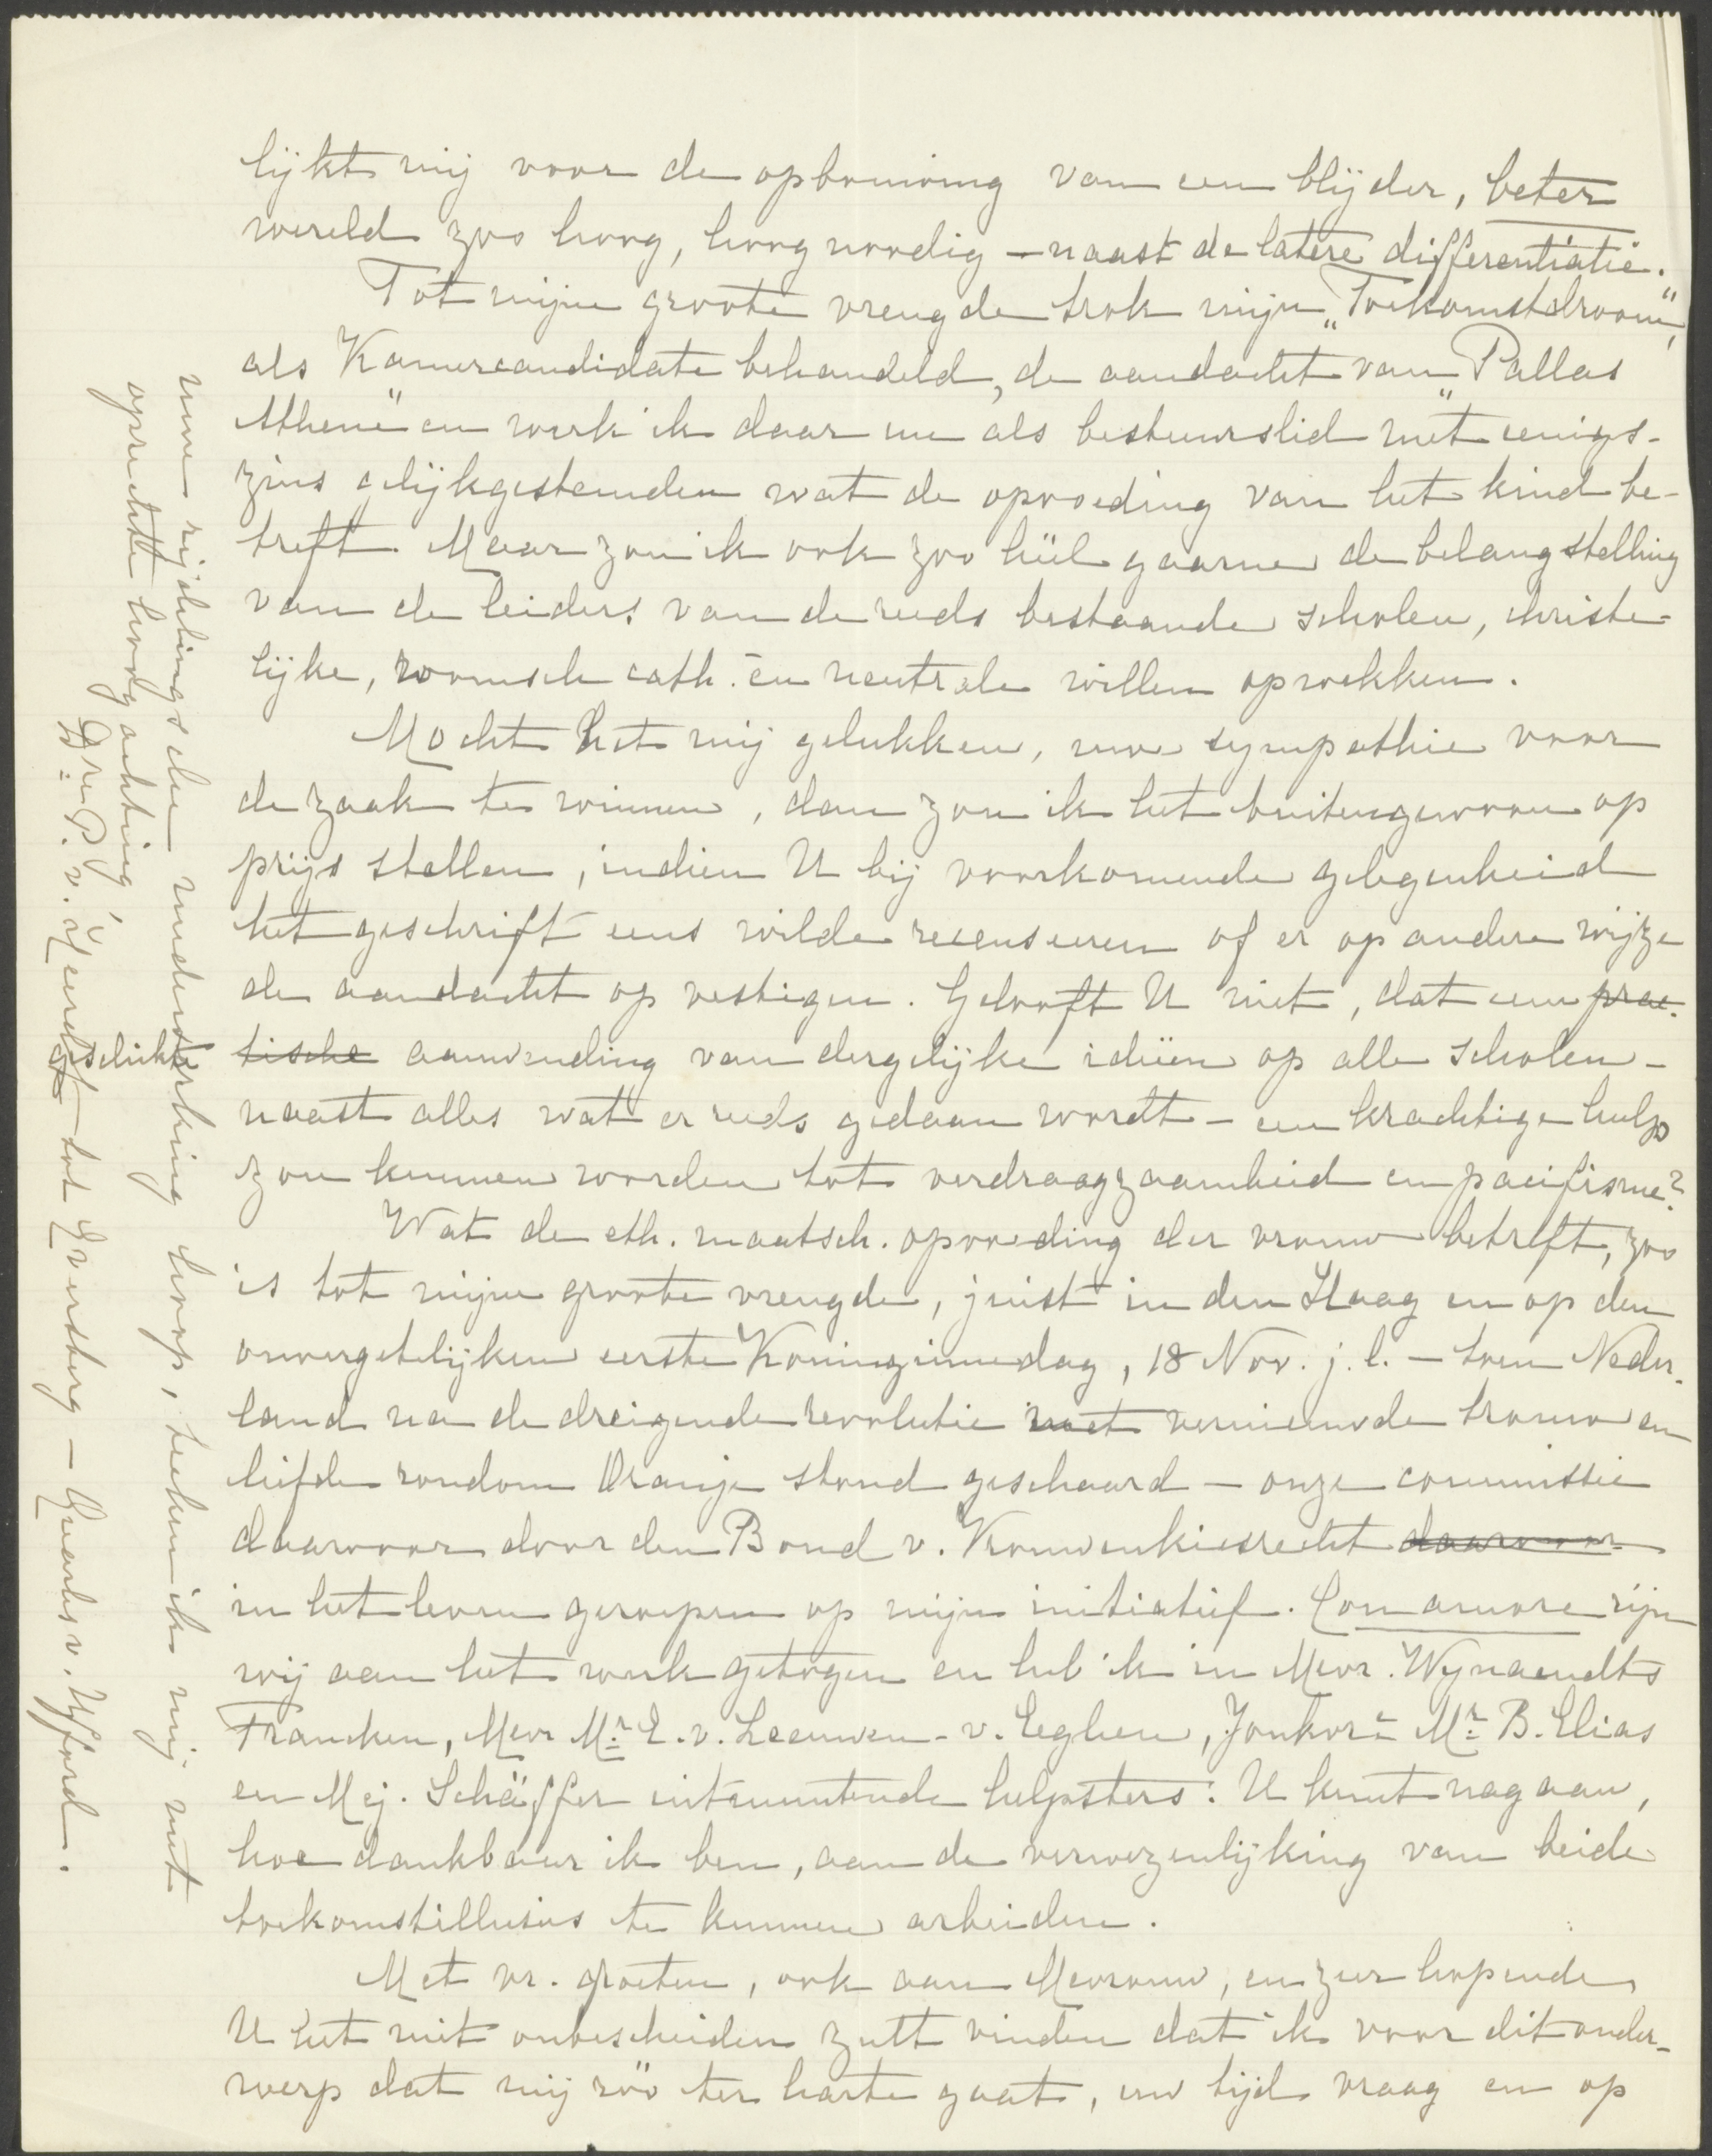 lijkt mij voor de opbouwing van een blijder, beter
wereld zoo hoog, hoog noodig — naast de latere differentiatie.
Tot mijne groote vreugde trok mijn „Toekomstdroom",
als Kamercandidate behandeld, de aandacht van „Pallas
Athene" en werk ik daar nu als bestuurslid met eenigs-
zins gelijkgestemden wat de opvoeding van het kind be-
treft. Maar zou ik ook zoo héél gaarne de belangstelling
van de leiders van de reeds bestaande scholen, christe-
lijke, roomsch cath. en neutrale willen opwekken.
Mocht het mij gelukken, uw sympathie voor
de zaak te winnen, dan zou ik het buitengewoon op
prijs stellen, indien U bij voorkomende gelegenheid
het geschrift eens wilde recenseeren of er op andere wijze
de aandacht op vestigen. Gelooft U niet, dat een prac-
geschikte tische aanwending van dergelijke ideeën op alle scholen —
naast alles wat er reeds gedaan wordt — een krachtige hulp
zou kunnen worden tot verdraagzaamheid en pacifisme?
Wat de eth. maatsch. opvoeding der vrouw betreft, zoo
is tot mijne groote vreugde, juist in den Haag en op den
onvergetelijken eerste Koninginnedag, 18 Nov. j.l. — toen Neder-
land na de dreigende revolutie met vernieuwde trouw en
liefde rondom Oranje stond geschaard — onze commissie
daarvoor door den Bond v. Vrouwenkiesrecht daarvoor
in het leven geroepen op mijn initiatief. Con amore zijn
wij aan het werk getogen en heb ik in Mevr. Wynaendts
Francken, Mevr Mr. E. v. Leeuwen - v. Eeghen, Jonkvr. Mr. B. Elias
en Mej. Schäffer uitmuntende helpsters. U kunt nagaan,
hoe dankbaar ik ben, aan de verwezenlijking van beide
toekomstillusies te kunnen arbeiden.
Met vr. groeten, ook aan Mevrouw, en zeer hopende
U het niet onbescheiden zult vinden dat ik voor dit onder-
werp dat mij zóó ter harte gaat, uw tijd vraag en op
uwe zijdelingsche medewerking hoop, teeken ik mij met
oprechte hoogachting,
Dre P. v. Heerdt tot Eversberg — Quarles v. Ufford.